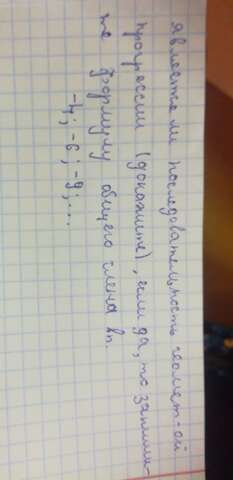 является ли последовательность геомет-ой
прогрессии (докажите), если да, то запиши-
те формулу общего члена bn.
-4; -6; -9; ...